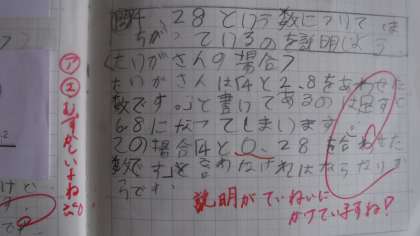 4.28という数について
ちがっているのを説明しよう
〈たいがさんの場合〉
たいがさんは4と2.8をあわせた
数です。」と書いてあるの
6.8になってしまいます
この場合4と0.28を合わせた
数です」と言わなければならない
です。
説明がていねいに
かけていますね!
むずかしいよね